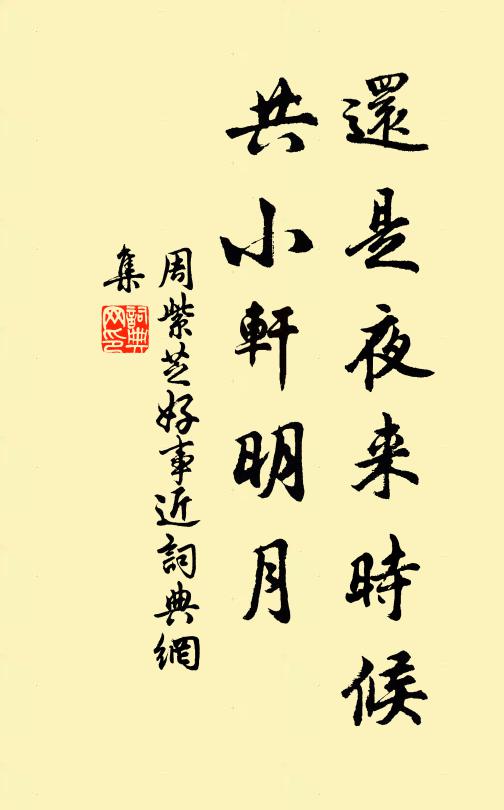 還是夜来時候
共小軒明月
周紫芝好事近詞典網
集
詞典
网印